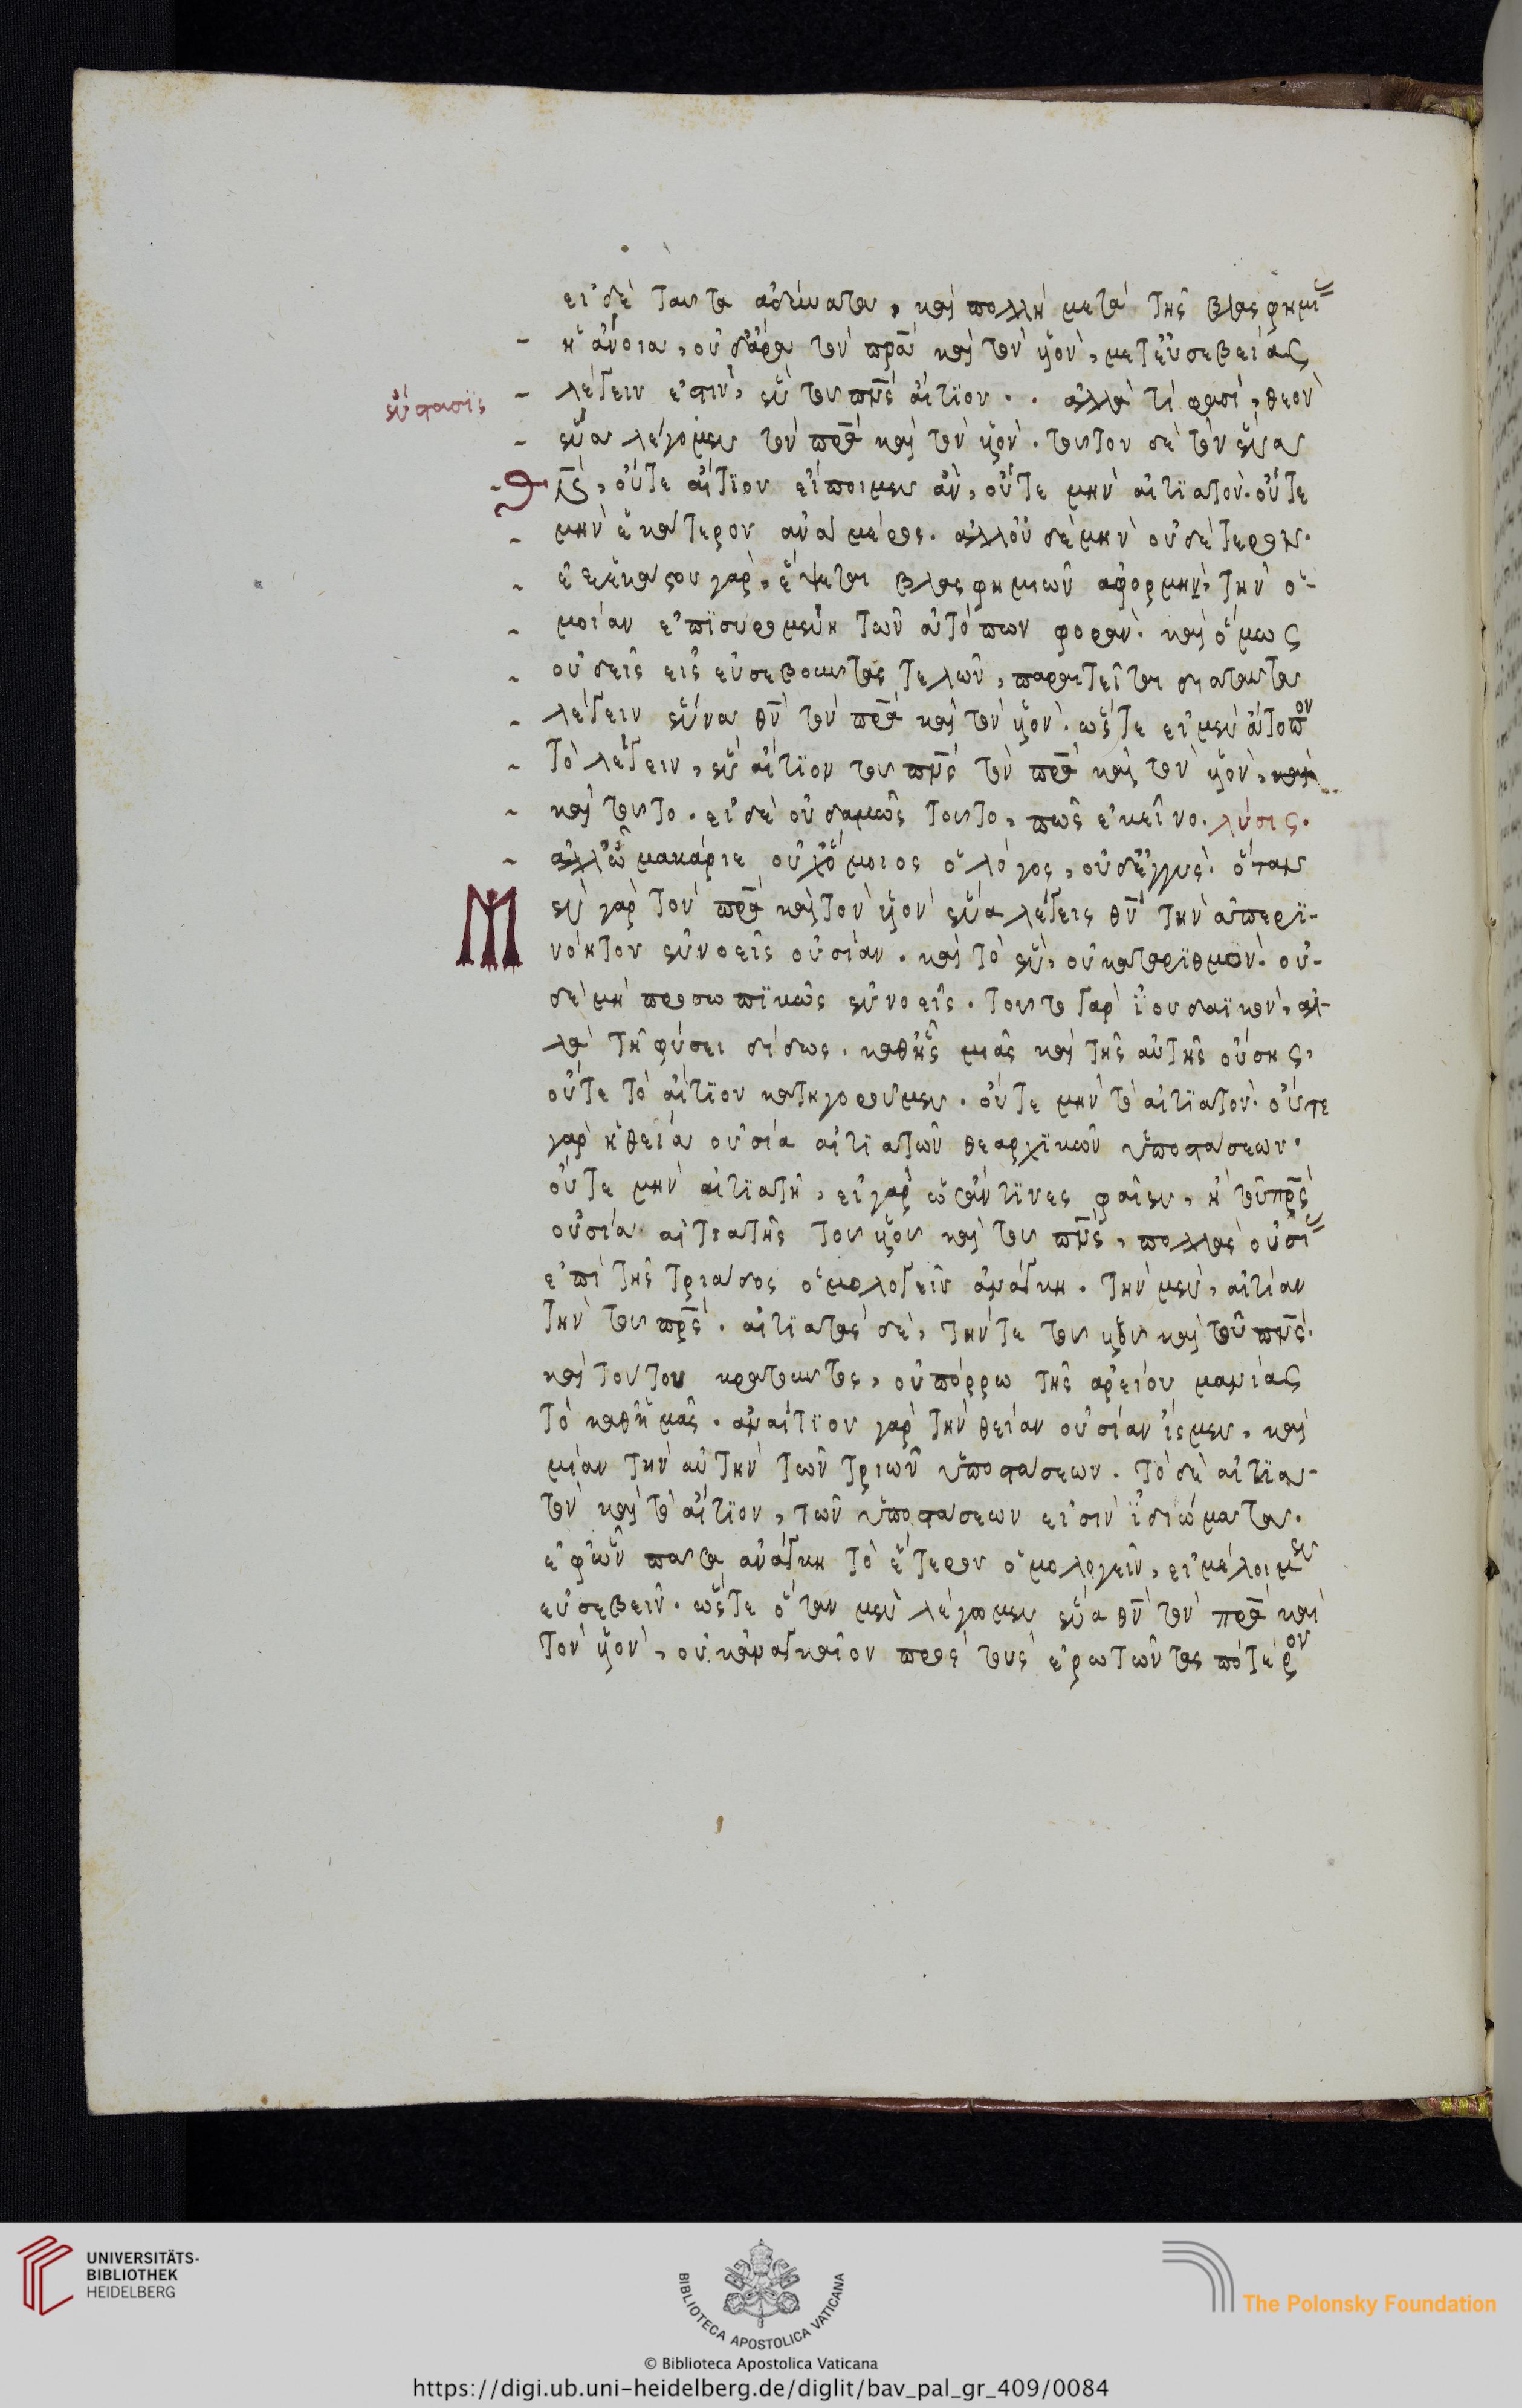 εἰ δὲ ταῦτα ἀδύνατα, καὶ πολλὴ μετὰ τῆς βλασφημί
ἡ ἄνοια, οὐδἄρα τὸν πρᾶ καὶ τὸν ὑὸν, μετεὐσεβείας
ἔνστασϊς
λέγειν ἐστιν, ἓν τοῦ πν̅ς αἴτϊον. . ἀλλὰ τί φασί, θεὸν
ἕνα λέγομεν τὸν πρα καὶ τὸν ὑὸν. τοῦτον δὲ τὸν ἕνα
θν̅, οὔτε αἴτϊον εἴποιμεν ἂν, οὔτε μὴν αἰτϊατὸν. οὔτε
μὴν ἑκάτερον ἀνα μέρος. ἀλλοὐδὲμὴν οὐδέτερον.
γὰρ, ἕψεται βλασφημιῶν ἀφορμὴ, τὴν ὁ-
μοίαν ἐπϊσυρομένη τῶν ἀτόπων φορὰν. καὶ ὅμως
οὐδεὶς εἰς εὐσεβοῦντας τελῶν, παραιτεῖται διαταῦτα
λέγειν ἕνα θν̅ τὸν πρα καὶ τὸν ὑὸν. ὥστε εἰ μὲν ἄτοπον
τὸ λέγειν, ἓν αἴτϊον τοῦ πν̅ς τὸν πρα καὶ τὸν ὑὸν, καὶ
καὶ τοῦτο. εἰ δὲ οὐδαμῶς τοῦτο, πῶς ἐκεῖνο. λύσις.
ἀλλὦ μακάριε οὐχὅμοιος ὁ λόγος, οὐδἐγγὺς. ὅταν
μὲν γὰρ τὸν πρα καὶ τὸν ὑὸν ἕνα λέγεις θν̅ τὴν ἀπερϊ-
νόητον ἐννοεῖς οὐσίαν. καὶ τὸ ἓν, οὐκαταρϊθμὸν. οὐ-
δὲ μὴ προσωπϊκῶς ἐννοεῖς. τοῦτο γὰρ ϊουδαϊκὸν, ἀλ-
λὰ τῆ φύσει διδως. καθἣς μιᾶς καὶ τῆς αὐτῆς οὔσης,
οὔτε τὸ αἴτϊον κατηγοροῦμεν. οὔτε μὴν τὸ αἰτϊατὸν. οὔτε
γὰρ ἡ θεία οὐσία αἰτϊατῶν θεαρχϊκῶν ὑποστάσεων.
οὔτε μὴν αἰτϊατὴ, εἰ γαρ ὡσἄν τϊνες φαῖεν, ἡ τοῦ πρς
οὐσία αἰτιατῆς τοῦ ὑοῦ καὶ τοῦ πν̅ς, πολλὰς οὐσί
ἐπὶ τῆς τριάδος ὁμολογεῖν ἀνάγκη. τὴν μὲν, αἰτίαν
τὴν τοῦ πρς. αἰτϊατὰς δὲ, τήν τε τοῦ ὑοῦ καὶ τοῦ πν̅ς.
καὶ τούτου κρατοῦντος, οὐ πόρρω τῆς ἀρείου μανίας
τὸ καθἡμᾶς. ἀναίτϊον γὰρ τὴν θείαν οὐσίαν ἴσμεν, καὶ
μίαν τὴν αὐτὴν τῶν τριῶν ὑποστάσεων. τὸ δὲ αἰτϊα-
τὸν καὶ τὸ αἴτϊον, τῶν ὑποστάσεων εἰσιν ϊδιώματα.
ἐφὧν πάντα ἀνάγκη τὸ ἕτερον ὁμολογεῖν, εἰ μέλοιμεν
εὐσεβεῖν. ὥστε ὅταν μὲν λέγωμεν ἕνα θν̅ τὸν πρα καὶ
τὸν ὑὸν, οὐκἀναγκαῖον πρὸς τοὺς ἐρωτῶντας πότερον
UNIVERSITÄTS-
BIBLIOTHEK
HEIDELBERG
BIBLIOTECA APOSTOLICA VATICANA
The Polonsky Foundation
© Biblioteca Apostolica Vaticana
https://digi.ub.uni-heidelberg.de/diglit/bav_pal_gr_409/0084